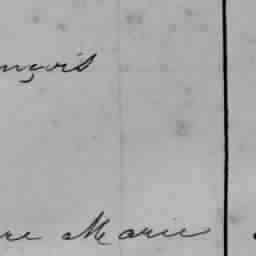 nçois
re Marie